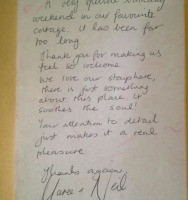 A very special
weekend in our favourite
cottage. it has been far
too long
Thank you for making us
feel so welcome
We love our stays here,
there is just something
about this place, it
soothes the soul!
Your attention to detail
just makes it a real
pleasure
Thanks again
& Neil